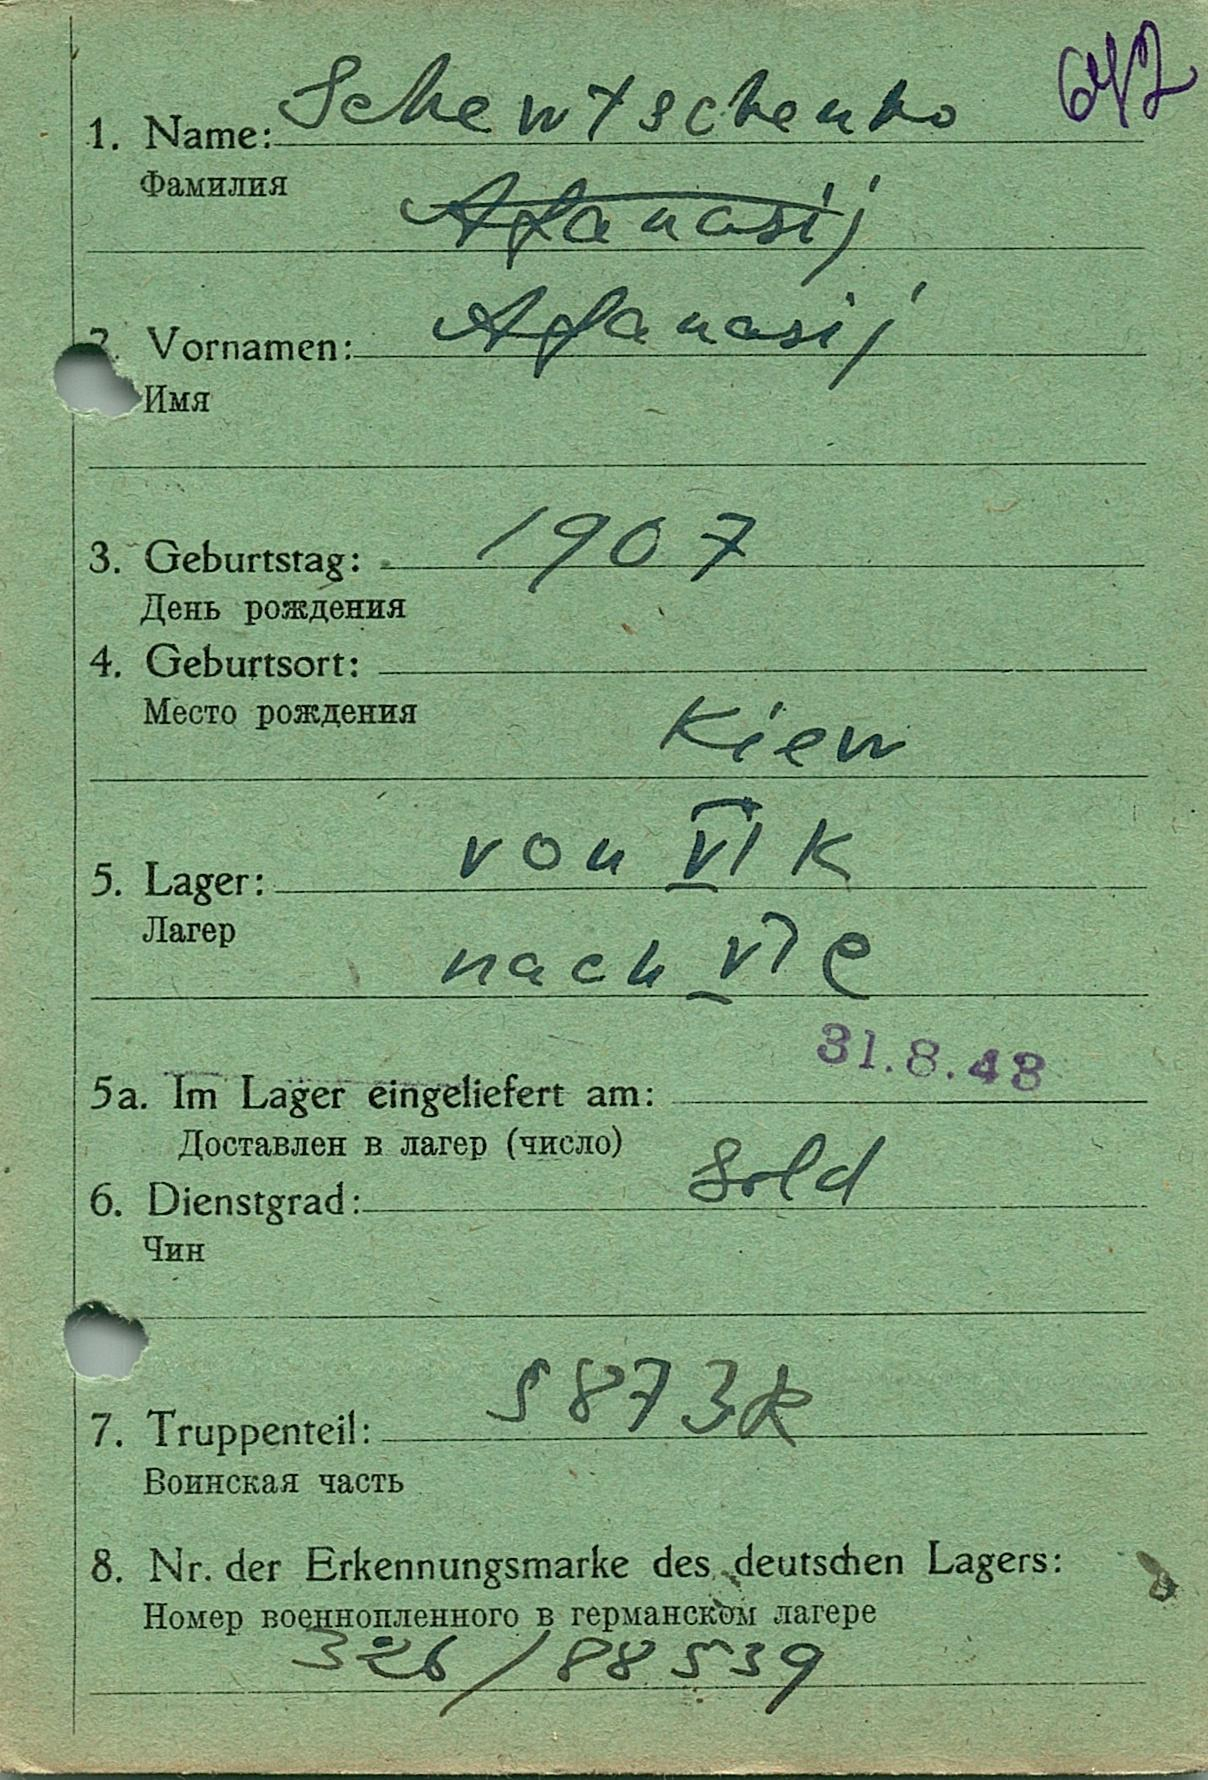 642
1. Name: Schewtschenko
Фамилия
Afanasij
2. Vornamen: Afanasij
Имя
3. Geburtstag: 1907
День рождения
4. Geburtsort:
Место рождения
Kiew
5. Lager: von VI K
Лагер
nach VI C
31.8.43
5a. Im Lager eingeliefert am:
Доставлен в лагер (число)
6. Dienstgrad: Sold
Чин
7. Truppenteil: 5873R
Воинская часть
8. Nr. der Erkennungsmarke des deutschen Lagers:
Номер военнопленного в германском лагере
326/88539